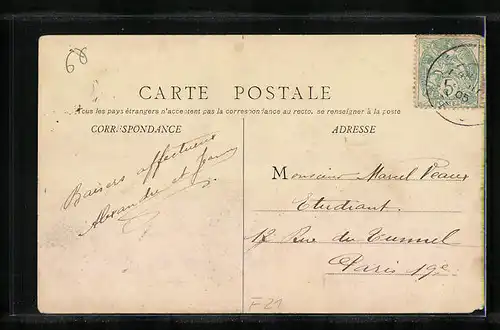 68
CARTE POSTALE
Tous les pays étrangers n'acceptent pas la correspondance au recto, se renseigner à la poste
CORRESPONDANCE
ADRESSE
Baisers affectueux
Alexandre et
Monsieur Marcel Veaux
Etudiant.
12 Rue du Tunnel
Paris 19e
F21